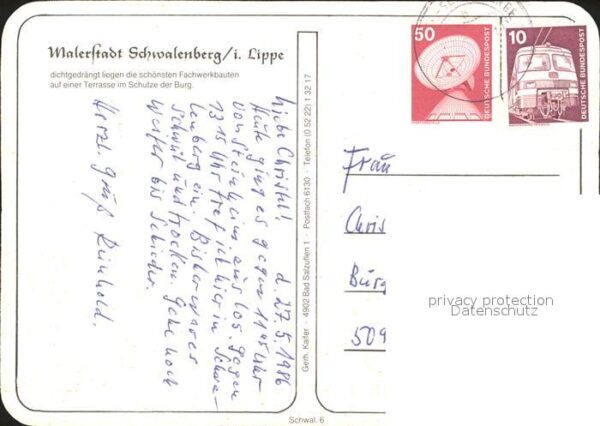 Malerstadt Schwalenberg/i. Lippe
dichtgedrängt liegen die schönsten Fachwerkbauten
auf einer Terrasse im Schutze der Burg.
d. 27.5.1986
Liebe Christel!
Heute ging es gegen 11⁴⁵ Uhr
von Steinheim aus los. Gegen
13¹⁵ Uhr traf ich hier in Schwa-
lenberg ein. Bisher war es
schwül und trocken. Gehe noch
weiter bis Schieder.
Herzl. Gruß Reinhold.
Gerh. Kaifer · 4902 Bad Salzuflen 1 · Postfach 6130 · Telefon (0 52 22) 1 32 17
Schwal. 6
50
DEUTSCHE BUNDESPOST
10
DEUTSCHE BUNDESPOST
Frau
Chris
Burg
509
privacy protection
Datenschutz